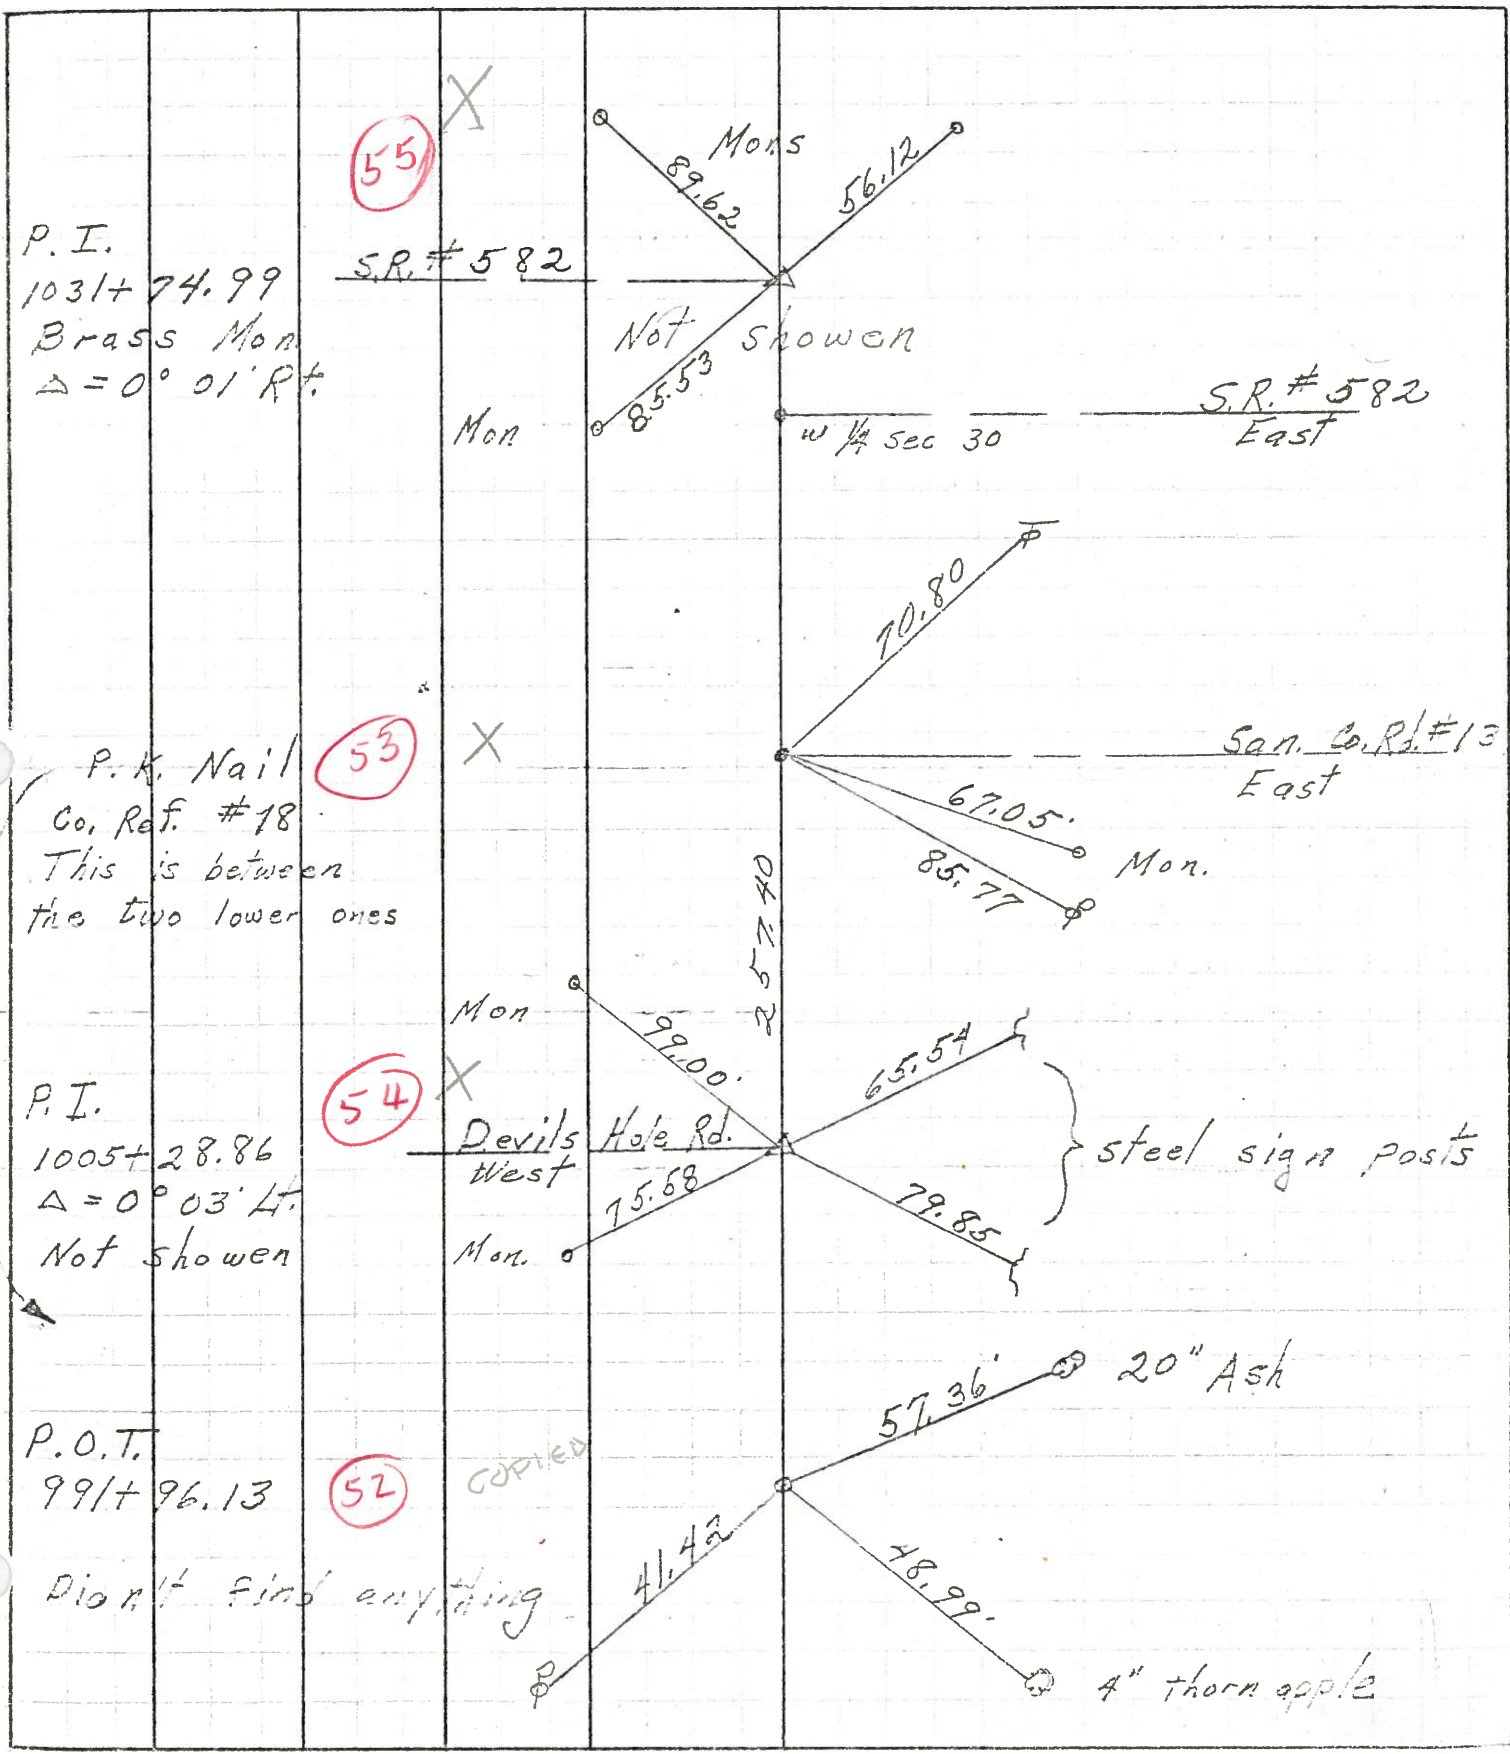 X
55
Mons
89.62
56.12
P. I.
1031+74.99
Brass Mon
△ = 0° 01' Rt.
S.R. # 582
Not showen
85.53
Mon
S.R. # 582
w 1/4 sec 30
East
70.80
53
X
P.K. Nail
Co. Ref. #18
This is between
the two lower ones
San. Co. Rd. #13
East
67.05'
Mon.
85.77
257.40
Mon
99.00'
65.54
54
X
P.I.
1005+28.86
△ = 0° 03' Lt.
Not showen
Devils Hole Rd.
West
75.58
Mon.
79.85
steel sign posts
57.36'
20" Ash
P.O.T.
991+96.13
52
COPIED
Didn't find anything
41.42
48.99'
4" thorn apple